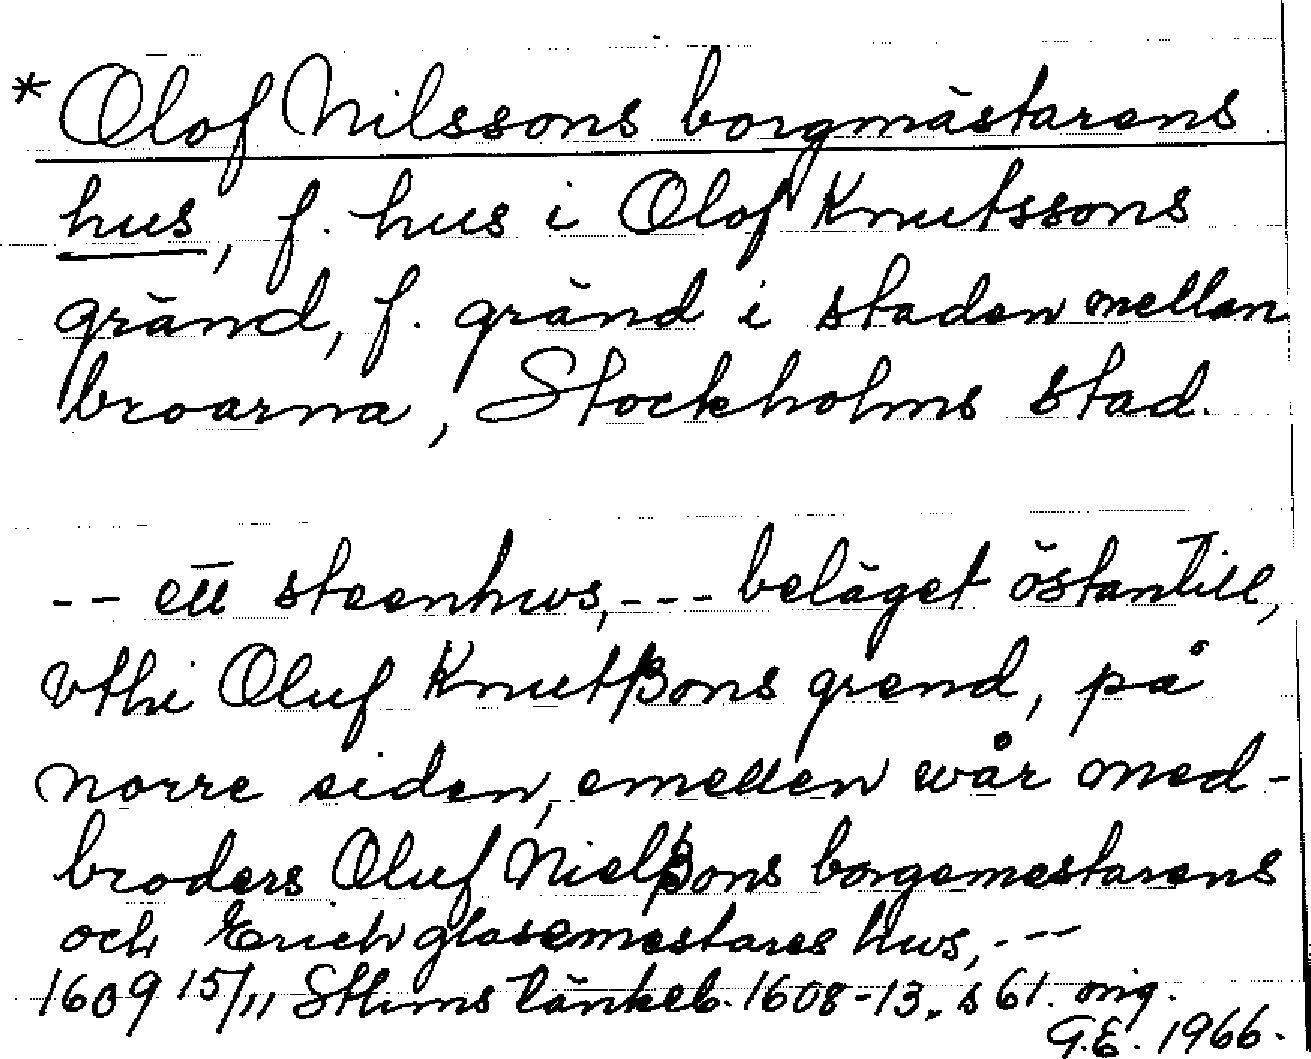 * Olof Nilssons borgmästarens
hus, f. hus i Olof Knutssons
gränd, f. gränd i staden mellan
broarna, Stockholms stad.
-- ett steenhws, --- beläget östantill,
vthi Oluf Knutßons grend, på
norre siden, emellen wår med-
broders Oluf Nielßons borgemestarens
och Erich glasemestares hws, ---
1609 15/11 Sthms tänkeb. 1608-13. s 61. orig.
G.E. 1966.